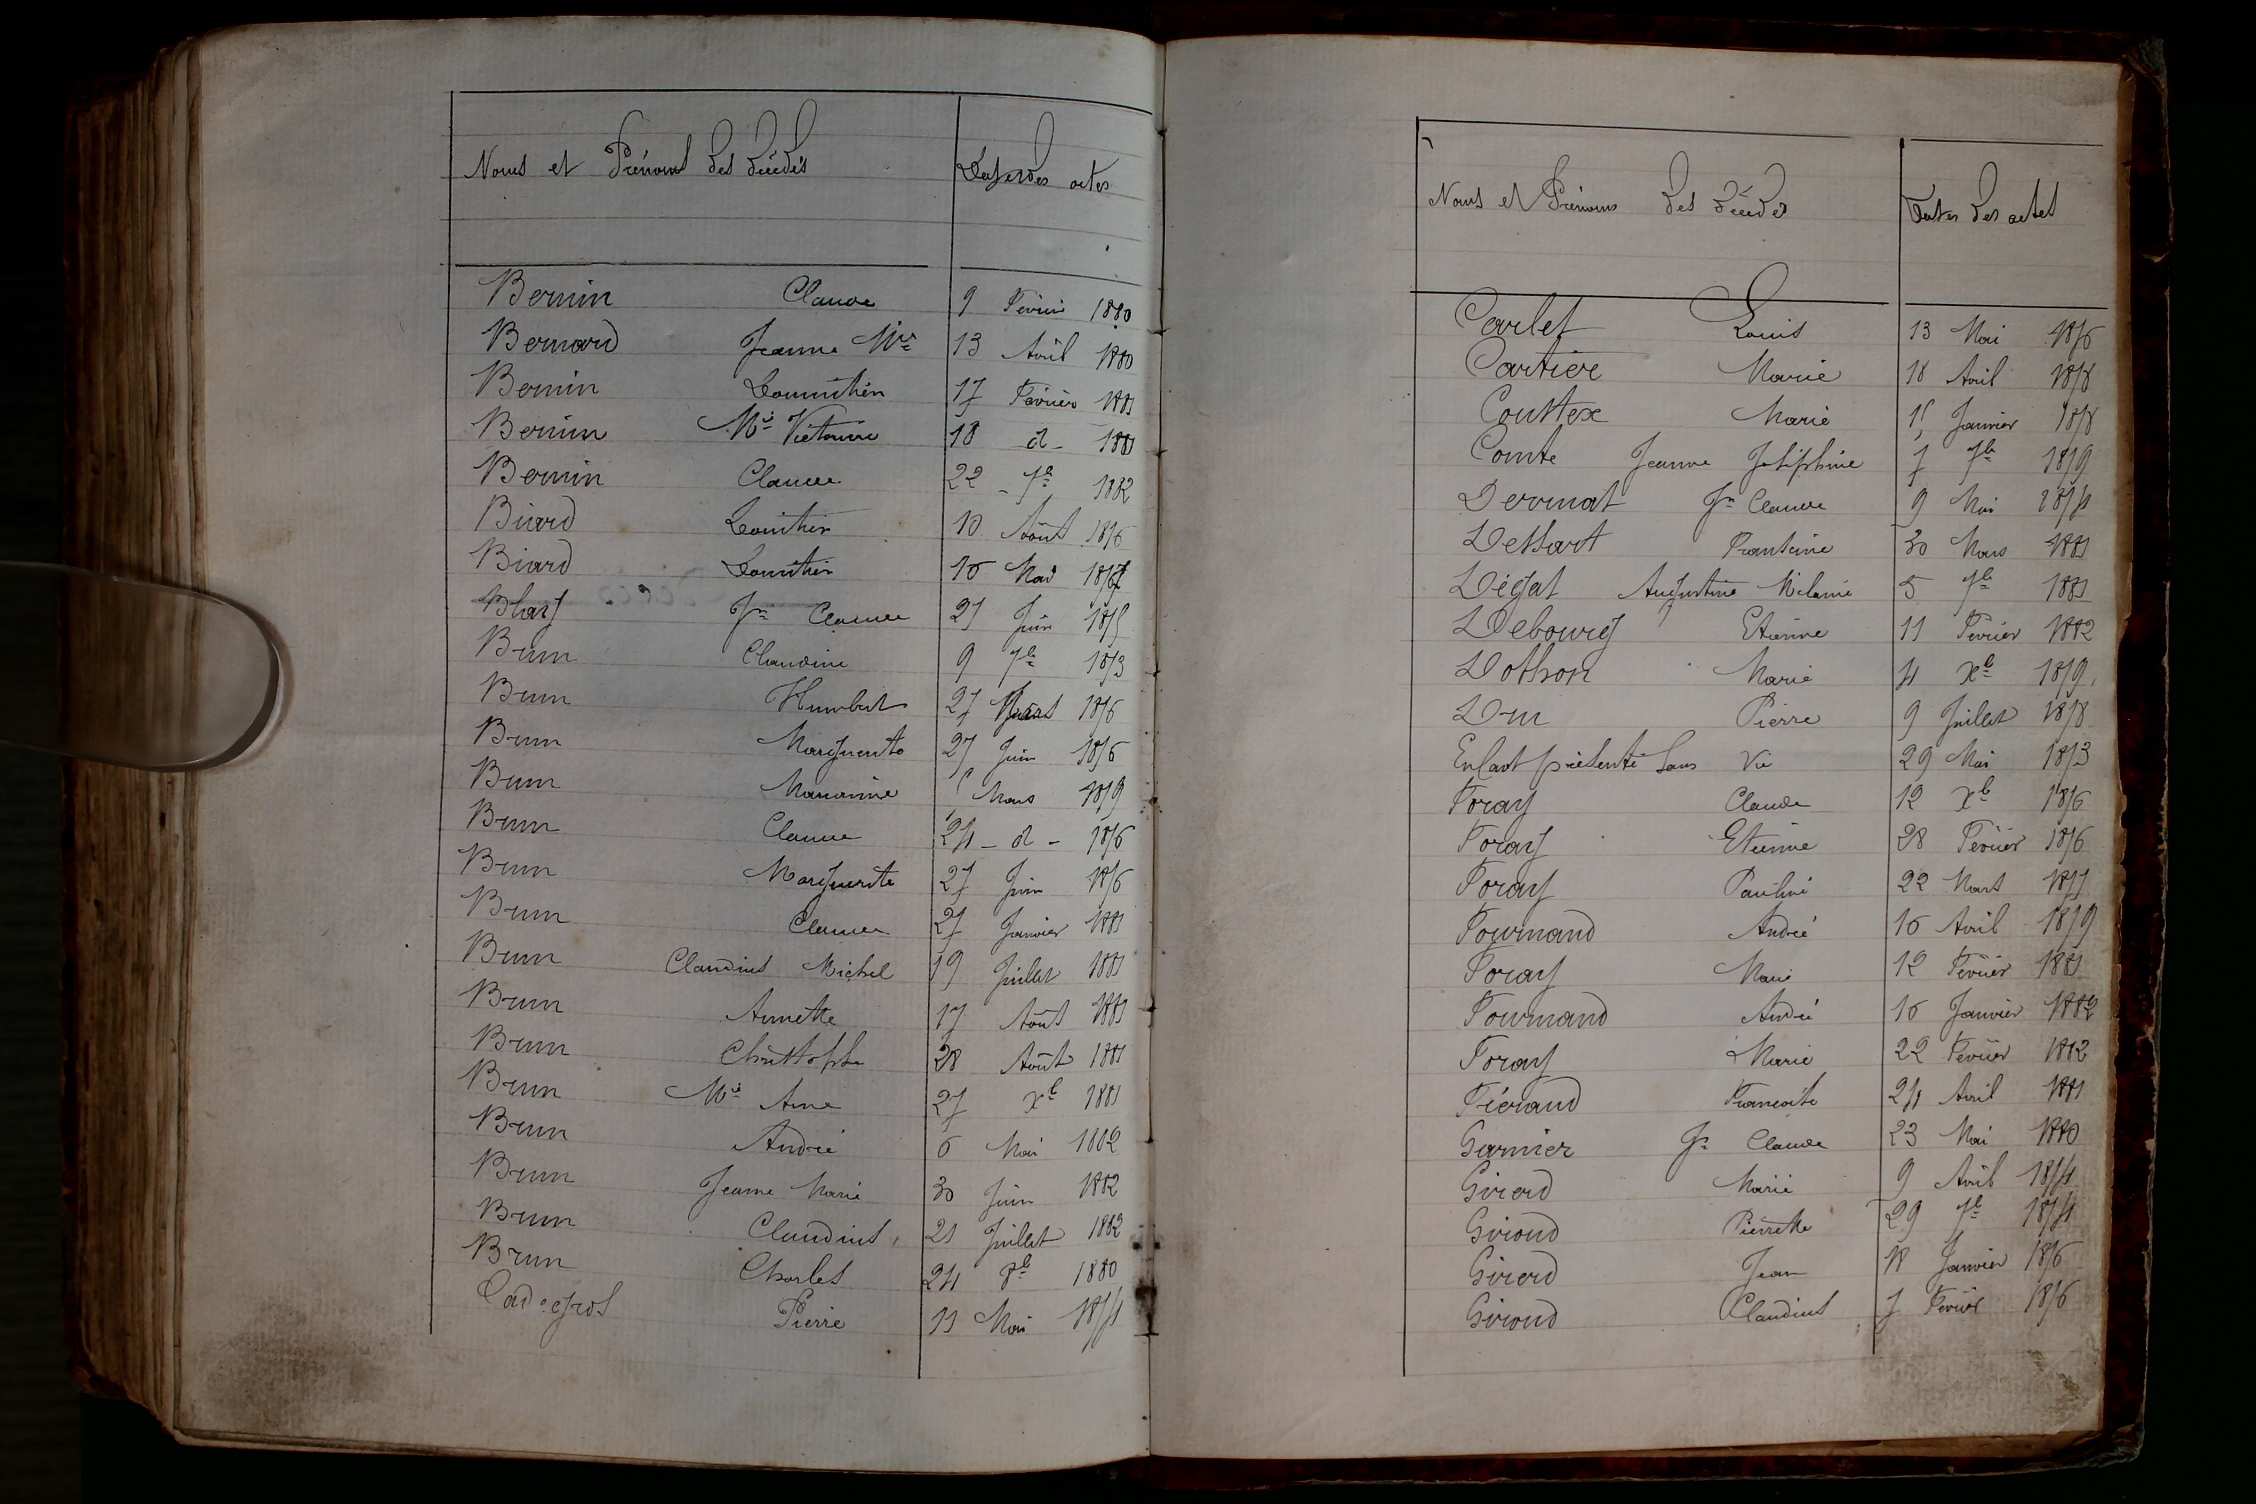 Noms et Prénoms des décédés Dates des actes
Bernin Claude 9 Février 1880
Bernard Jeanne Mie 13 Avril 1880
Bernin Dominithin 17 Février 1881
Bernin Mie Victorine 18 d- 1881
Bernin Claude 22 - 7b 1882
Biard 10 Août 1876
Biard 16 Mai
Jn Claude 21 Juin 1875
Brun Claudine 9 7b 1873
Brun Humbert 27 Mars 1876
Brun Marguerite 27 Juin 1876
Brun Marianne Mars 1879
Brun Claude 24 - d - 1876
Brun Marguerite 27 Juin 1876
Brun Claude 27 Janvier 1881
Brun Claudius Michel 19 Juillet 1881
Brun Annette 17 Août 1881
Brun Christophe 28 Août 1881
Brun Mie Anne 27 Xb 1881
Brun André 6 Mai 1882
Brun Jeanne Marie 30 Juin 1882
Brun Claudius 21 Juillet 1882
Brun Charles 24 8b 1880
Pierre 11 Mai 1874
Noms et Prénoms des décédés Dates des actes
Carlet Louis 13 Mai 1876
Cartière Marie 18 Avril 1878
Couttex Marie 15 Janvier 1878
Comte Jeanne Joséphine 7 7b 1879
Dermat Jn Claude 9 Mai 1874
Dessart Françoise 30 Mars 1881
Dégat Augustine Mélanie 5 7b 1881
Debourg Etienne 11 Février 1882
Dothon Marie 4 Xb 1879
Dru Pierre 9 Juillet 1878
Enfant présenté sans Vie 29 Mai 1873
Foray Claude 12 Xb 1876
Foray Etienne 28 Février 1876
Foray Pauline 22 Mars 1877
Fournand André 16 Avril 1879
Foray Marie 12 Février 1881
Fournand André 16 Janvier 1882
Foray Marie 22 Février 1882
Féraud Françoise 24 Avril 1881
Garnier Jn Claude 23 Mai 1880
Girerd Marie 9 Avril 1874
Giroud Pierrette 29 7b 1874
Girerd Jean 18 Janvier 1876
Giroud Claudius 7 Février 1876